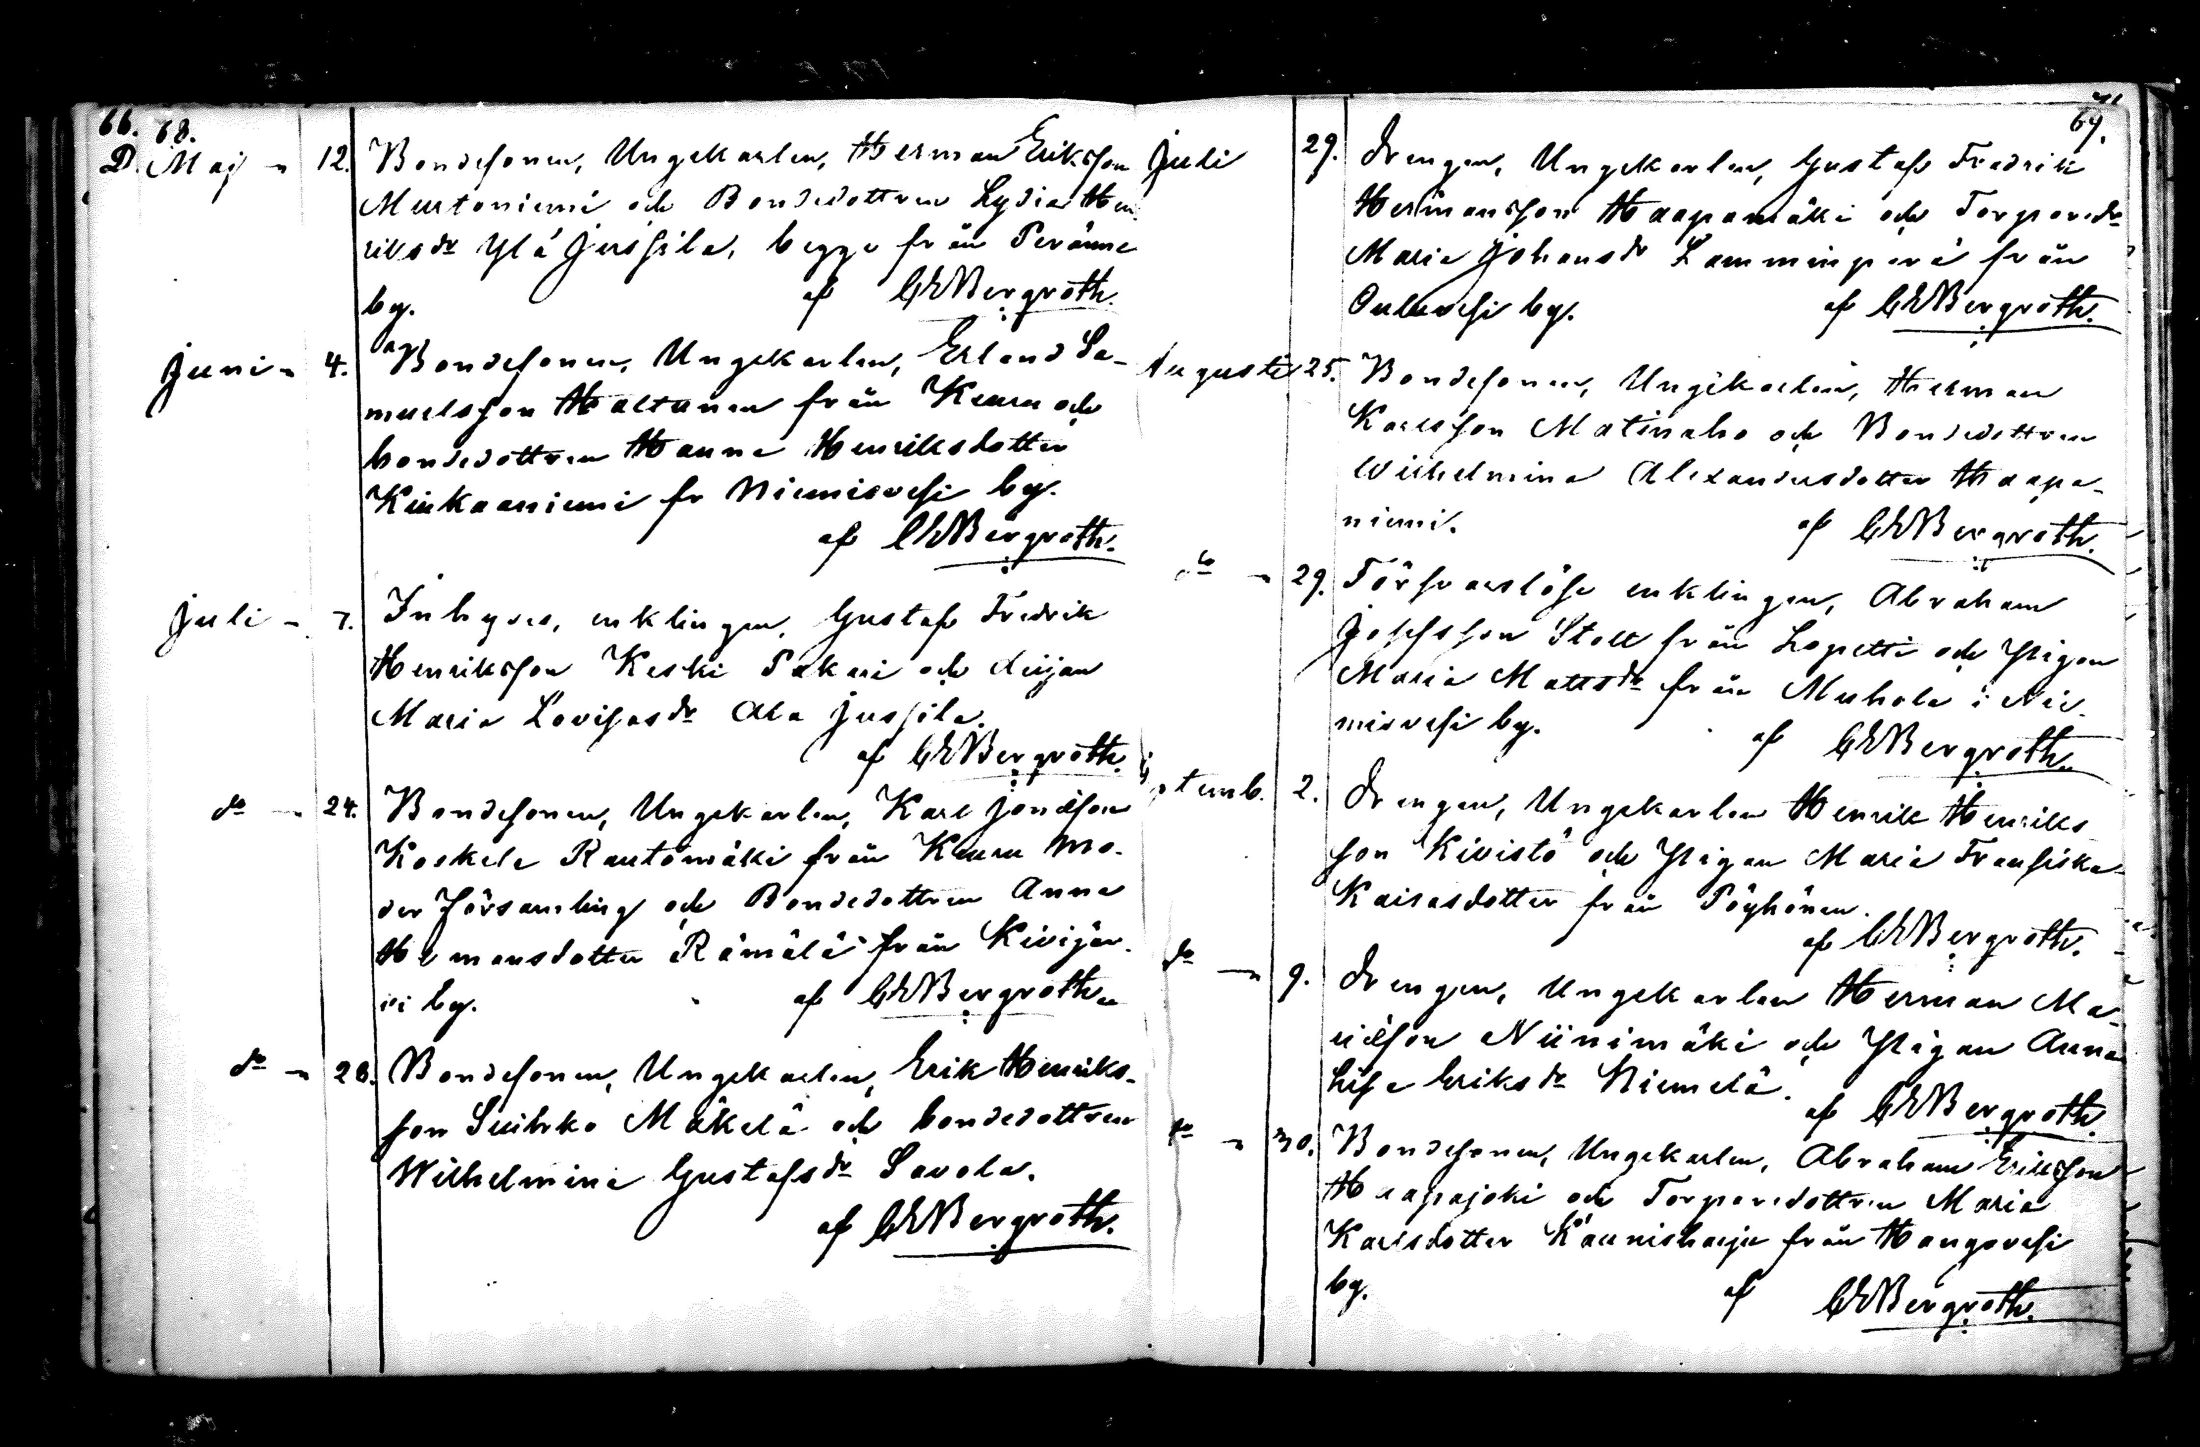 66. 68.
D. Maj " 12. Bondesonen, Ungekarlen, Herman Eriksson
Murtoniemi och Bondedottren Lydia Hen
riksdr Ylä Jussila, begge från Peränne
by. af CEBergroth.
Juni " 4. Bondesonen, Ungekarlen, Erland Sa-
muelsson Haltunen från Keuru och
bondedottren Hanna Henriksdotter
Kiukaaniemi fr Niemisvesi by.
af CEBergroth.
Juli " 7. Inhyses, enklingen, Gustaf Fredrik
Henriksson Keski Pakari och
Maria Lovisasdr Ala Jussila.
af CEBergroth.
do " 24. Bondesonen, Ungekarlen, Karl Jonasson
Koskela Rautamäki från Keuru Mo-
der församling och Bondedottren Anna
Hermansdotter Rämälä från Kivijär-
vi by. af CEBergroth.
do " 28. Bondesonen, Ungekarlen, Erik Henriks-
son Suihko Mäkelä och bondedottren
Wilhelmina Gustafsdr Savola.
af CEBergroth.
69.
Juli 29. Drengen, Ungekarlen, Gustaf Fredrik
Hermansson Haapamäki och Torparedr
Maria Johansdr Lamminperä från
Ouluvesi by. af CEBergroth.
Augusti 25. Bondesonen, Ungekarlen, Herman
Karlsson Matinaho och Bondedottren
Wilhelmina Alexandersdotter Haapa-
niemi. af CEBergroth.
do " 29. Försvarslöse enklingen, Abraham
Josefsson Stoll från Lopetti och Pigan
Maria Mattsdr från Muhola i Nie-
misvesi by. af CEBergroth.
Septemb. 2. Drengen, Ungekarlen Henrik Henriks
son Kivistö och Pigan Maria Fransiska
Kaisasdotter från Pöyhönen.
af CEBergroth.
do " 9. Drengen, Ungekarlen Herman Ma-
riasson Niinimäki och Pigan Anna
Lisa Eriksdr Niemelä.
af CEBergroth.
do " 30. Bondesonen, Ungekarlen, Abraham Eriksson
Haapajoki och Torparedottren Maria
Karlsdotter Kaunisharju från Hangovesi
by. af CEBergroth.